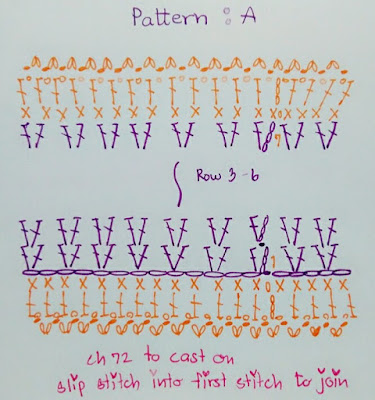 Pattern : A
7
Row 3-6
1
ch 72 to cast on
slip stitch into first stitch to join